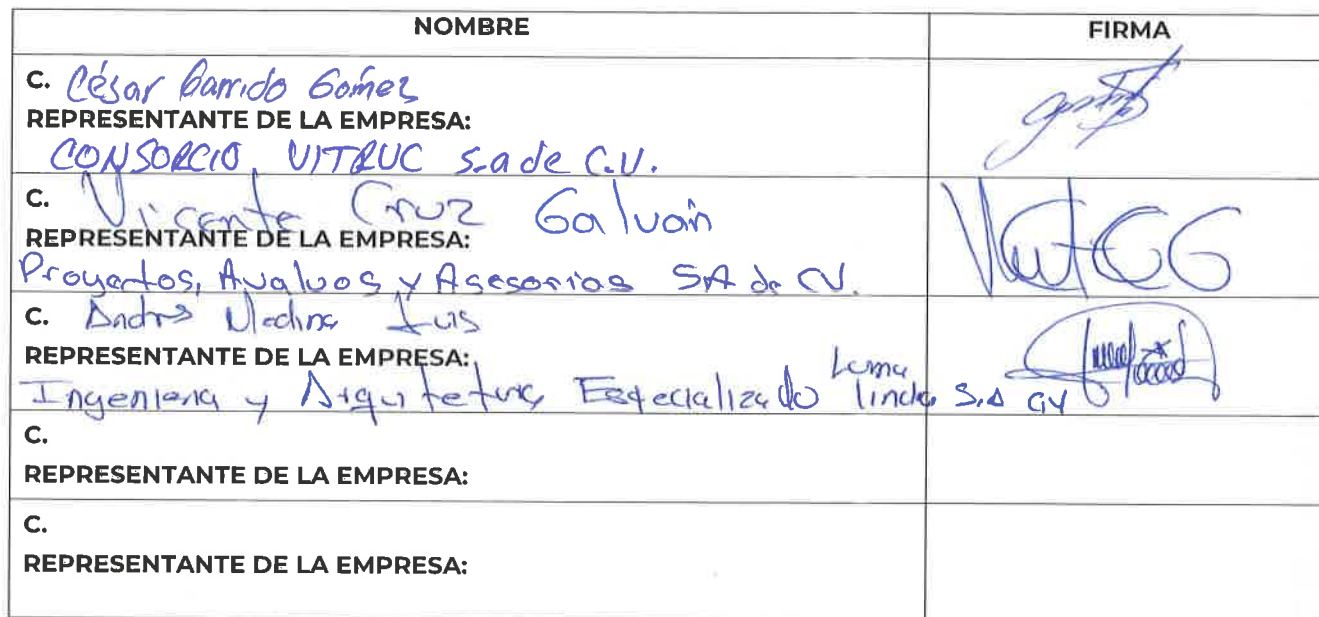 NOMBRE FIRMA
C. César Garrido Gómez
REPRESENTANTE DE LA EMPRESA:
CONSORCIO VITRUC S.a de C.V.
C. Vicente Cruz Galván
REPRESENTANTE DE LA EMPRESA:
Proyectos, Avaluos y Asesorias SA de CV.
C. Andres Medina Luis
REPRESENTANTE DE LA EMPRESA:
Ingenieria y Arquitetura Especializado Loma linda S.A CV
C.
REPRESENTANTE DE LA EMPRESA:
C.
REPRESENTANTE DE LA EMPRESA: